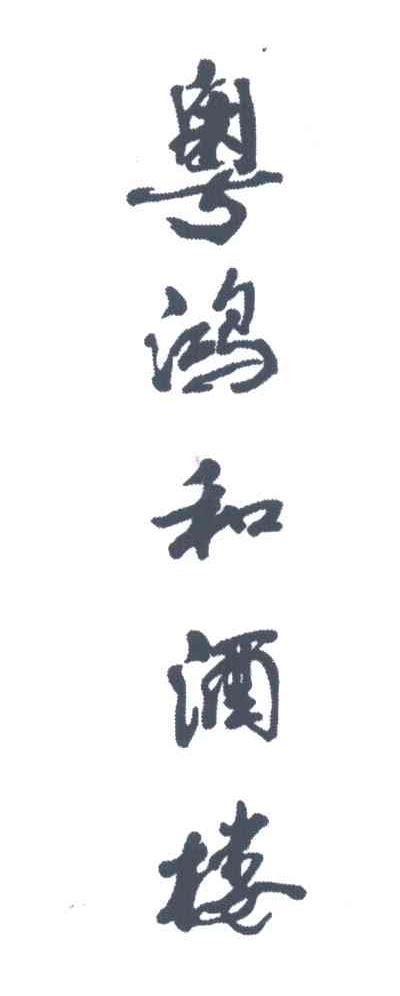 粤鸿和酒楼